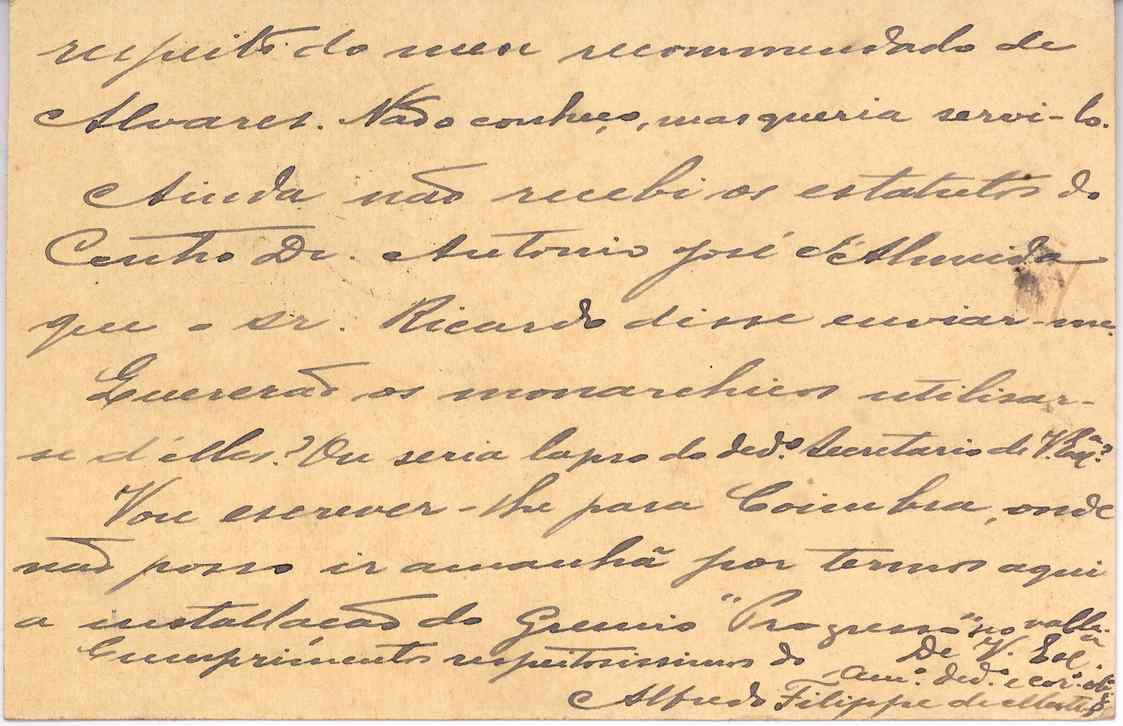 respeito do meu recommendado de
Alvares. Não conheço, mas queria servi-lo.
Ainda não recebi os estatutos do
Centro Dr. Antonio José d'Almeida
que o sr. Ricardo disse enviar-me.
Quererão os monarchicos utilisar-
se d'elles? Ou seria lapso do dedº. Secretario de V. Exª.?
Vou escrever-lhe para Coimbra, onde
não posso ir amanhã por termos aqui
a installação do Gremio "Progresso"
Cumprimentos respeitosissimos do De V. Exª.
amº. dedº. e corº.
Alfredo Filippe de Mattos